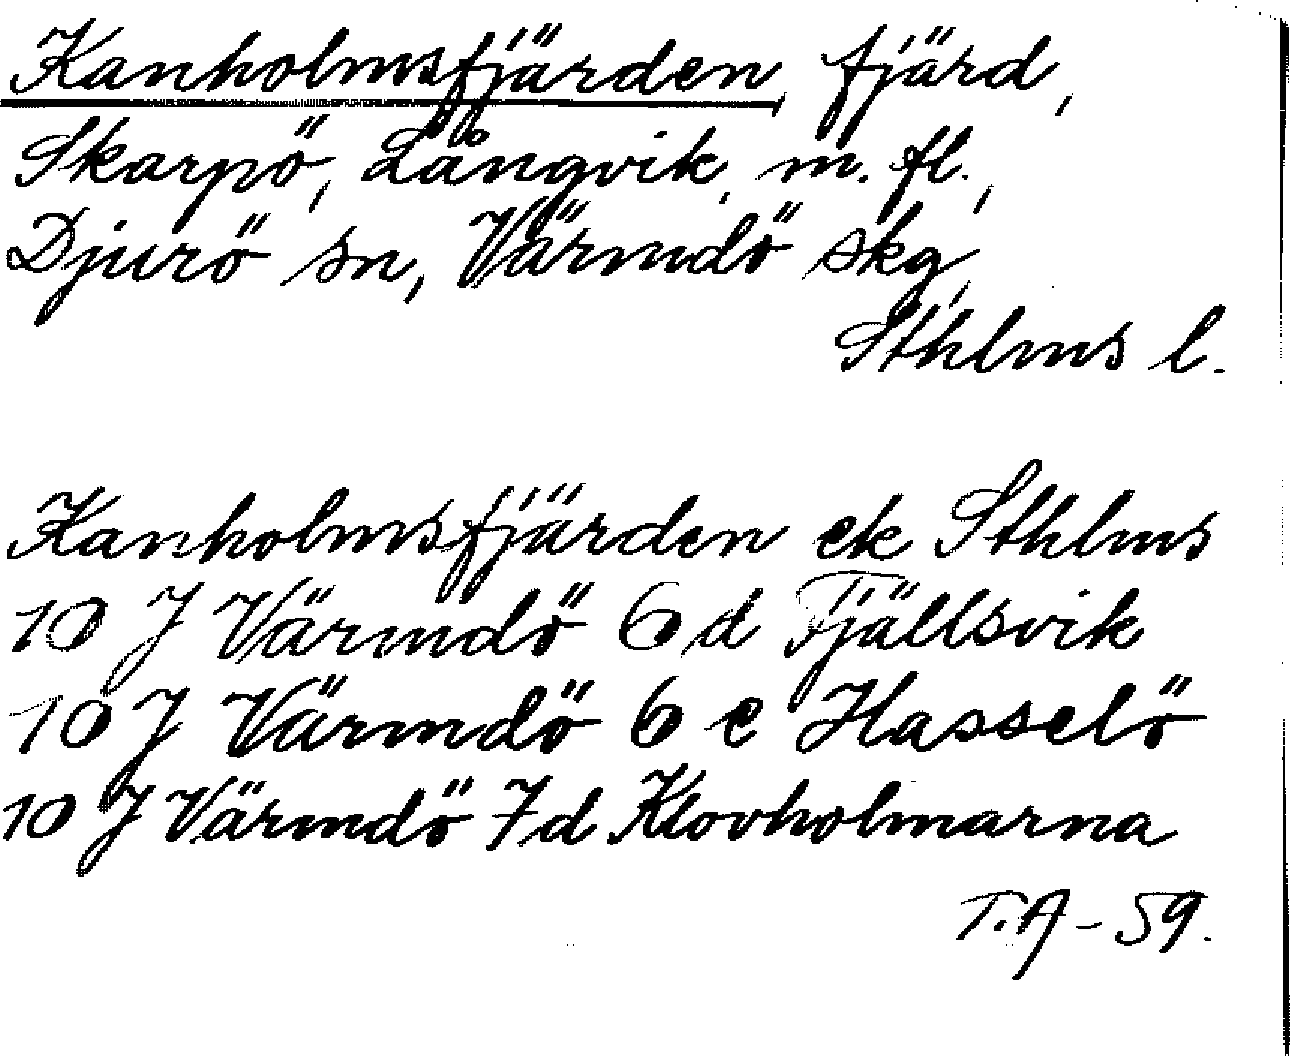 Kanholmsfjärden, fjärd,
Skarpö, Långvik, m. fl.,
Djurö sn, Värmdö skg,
Sthlms l.
Kanholmsfjärden ek Sthlms
10 J Värmdö 6 d Fjällsvik
10 J Värmdö 6 e Hasselö
10 J Värmdö 7d Klovholmarna
T.A - 59.